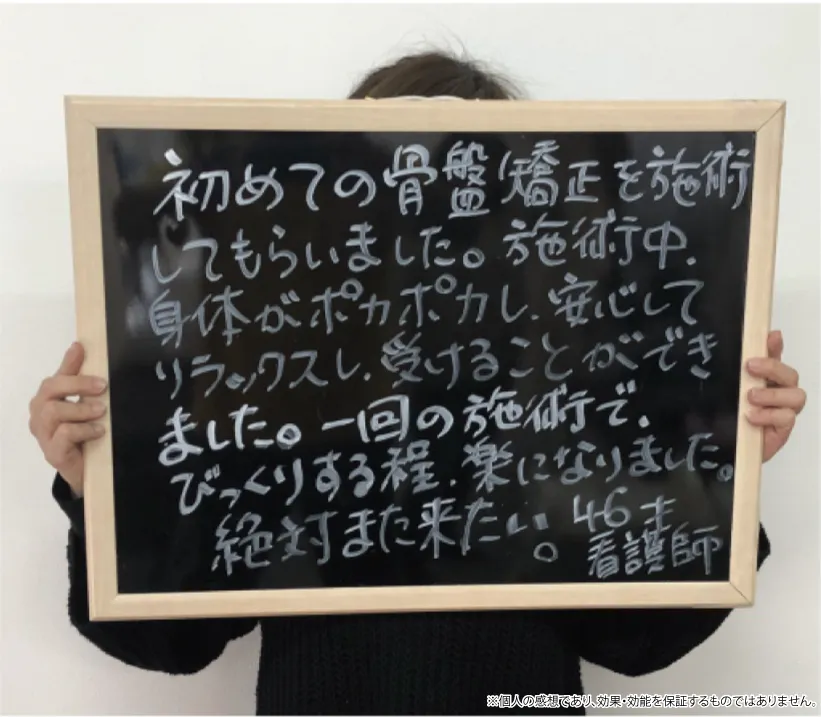 初めての骨盤矯正を施術
してもらいました。施術中、
身体がポカポカし、安心して
リラックスし、受けることができ
ました。一回の施術で、
びっくりする程、楽になりました。
絶対また来たい。46才
看護師
※個人の感想であり、効果・効能を保証するものではありません。